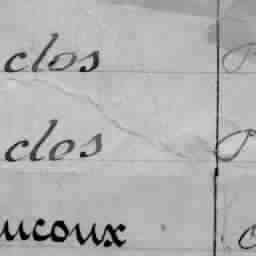 clos
clos
ucoux